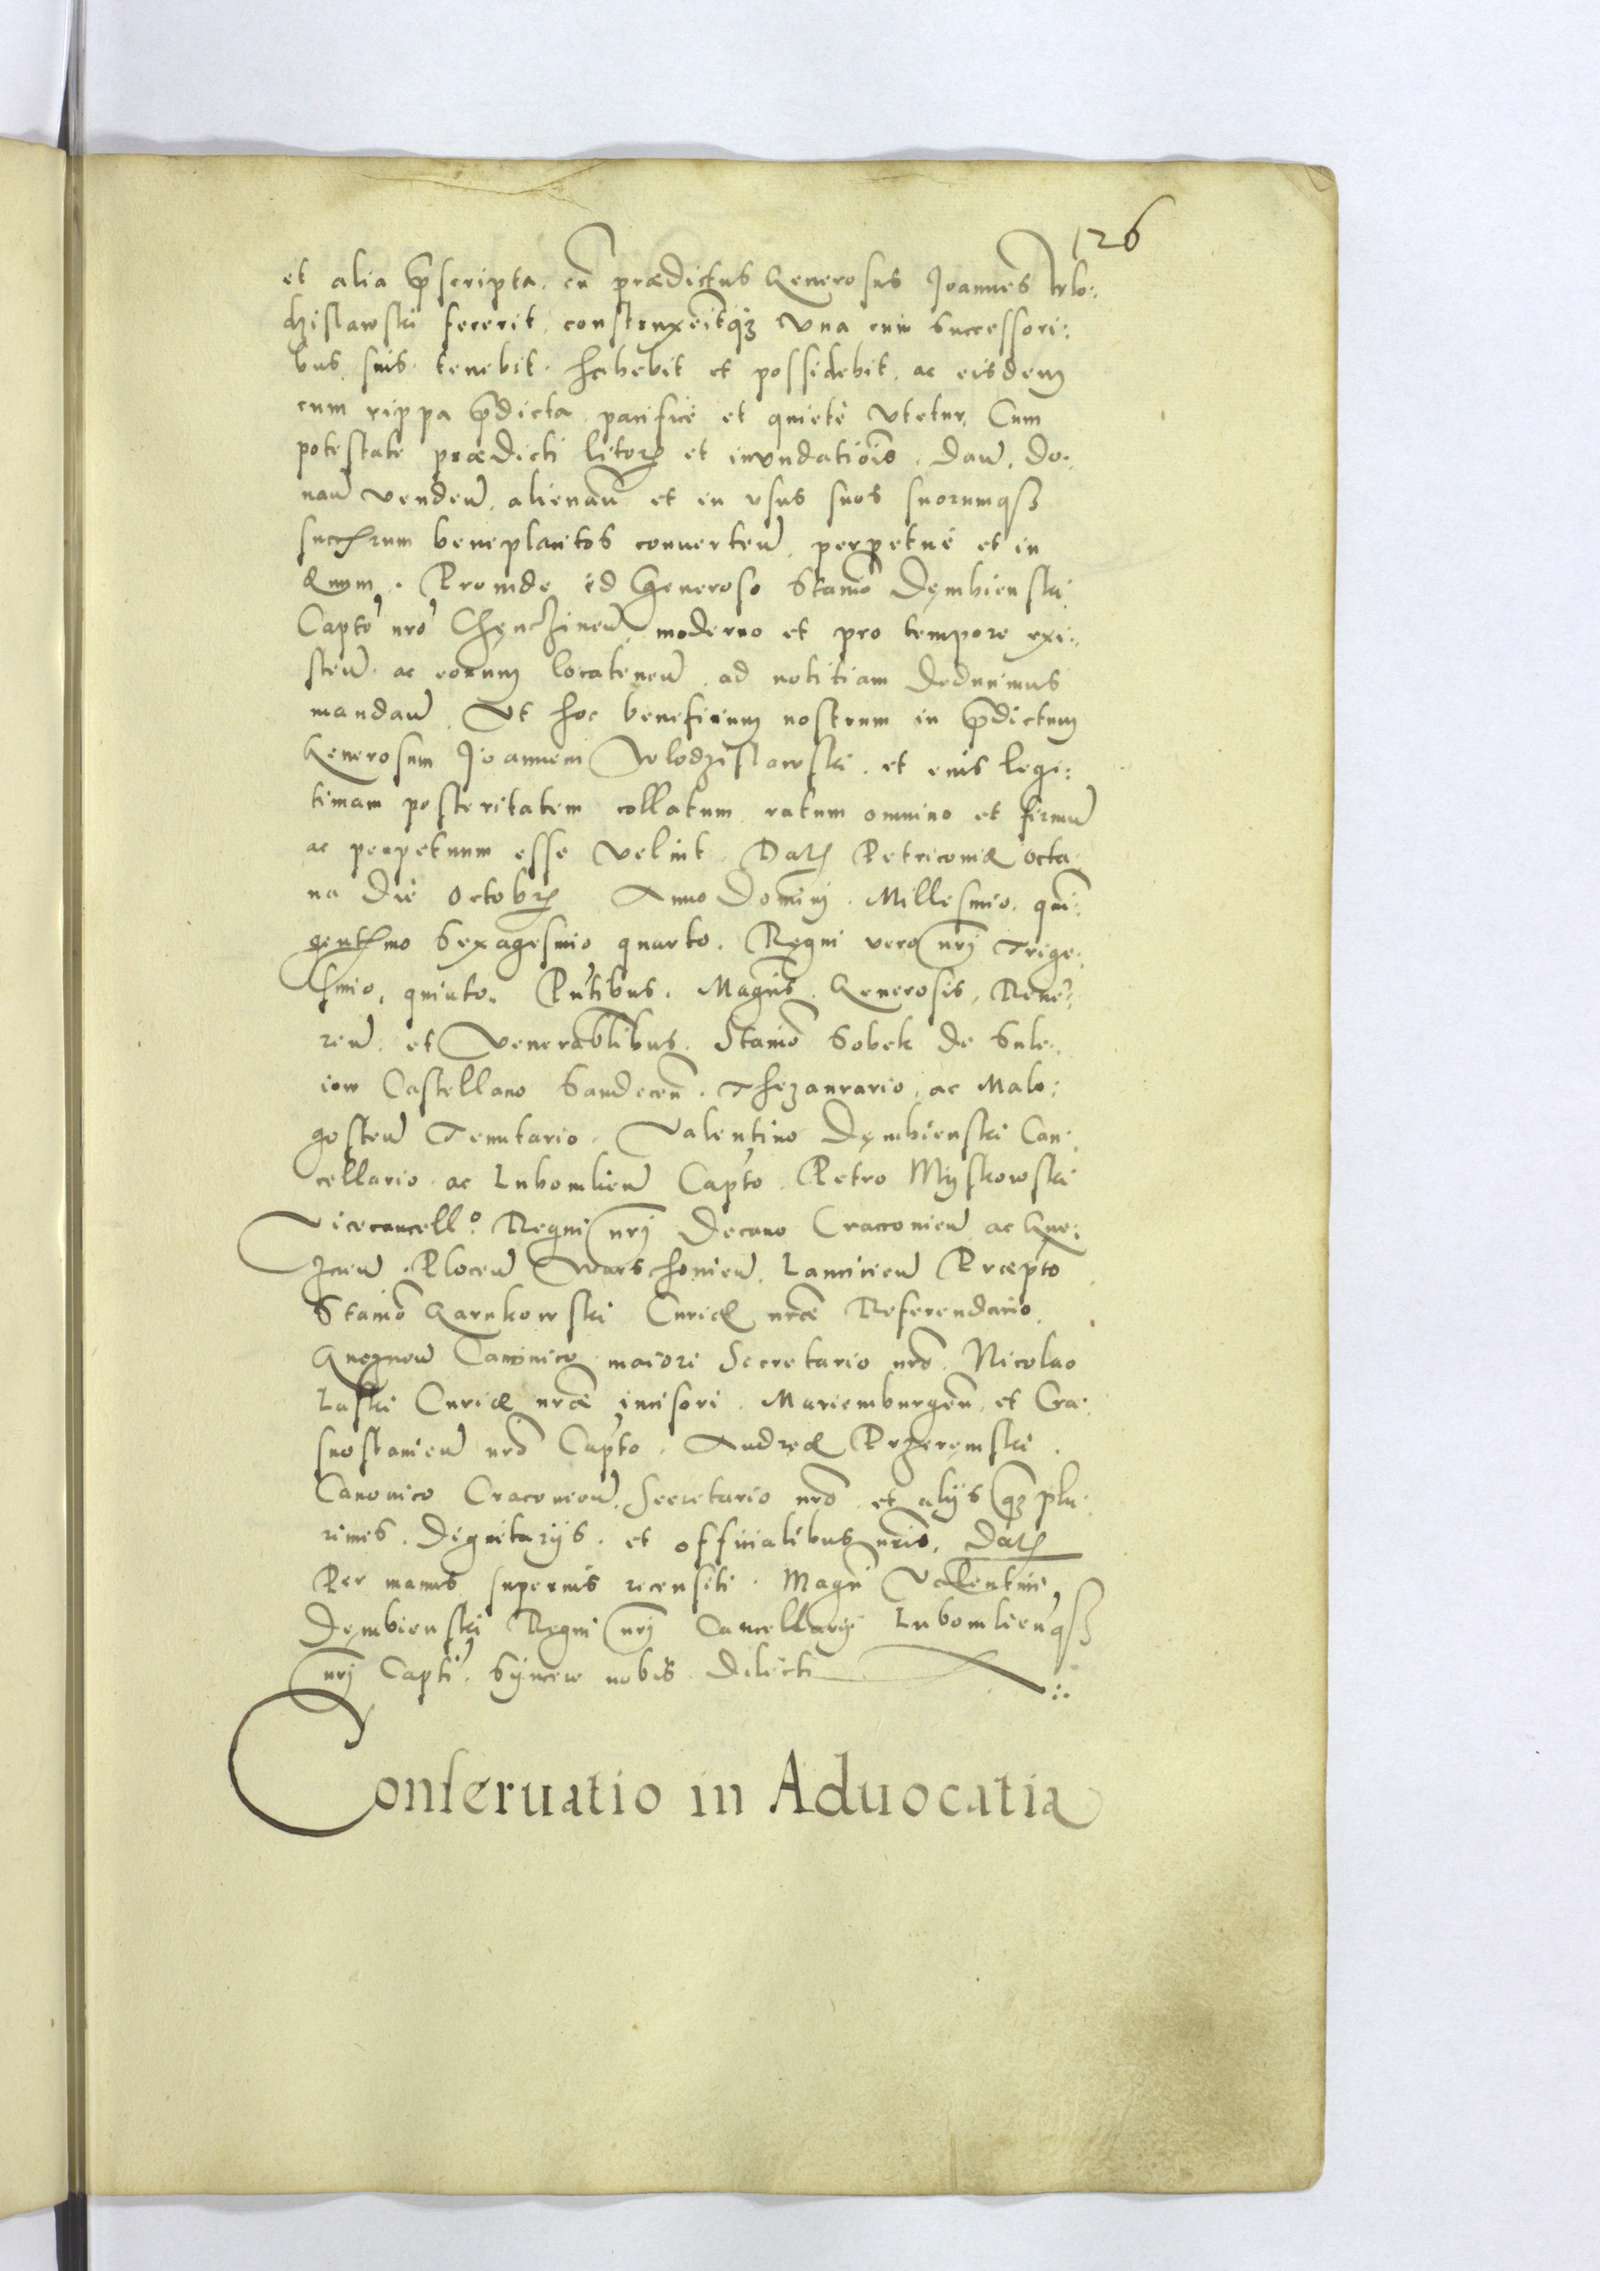 126
et alia p̄scripta. cū prædictus Generosus Joannes Wlo:
dzislawski fecerit, construxeritq3 vna cum Successori:
bus suis tenebit. habebit et possidebit. ac eisdem
cum rippa p̄dicta pacificè et quietè vtetur, Cum
potestate prædicti litoris et invndatiōis. dan̄. do:
nan̄ venden̄. alienan̄ et in vsus suos suorumq3
succrum beneplacitos conuerten̄. perpetuè et in
æuum. Proinde id Generoso Stanō Dęmbienski
Captō nrō Chęnczinen̄ moderno et pro tempore exi:
sten̄ ac eorum locatenen̄ ad notitiam deducimus
mandan̄. Vt hoc beneficium nostrum in p̄dictum
Generosum Joannem Wlodzislawski. et eius legi:
timam posteritatem collatum ratum omnino et firmū
ac perpetuum esse velint. Dat Petricouiæ octa
na die octobr Anno Dominj. Millesimo. quī:
gentmo Sexagesimo quarto. Regni vero nrj Trige:
simo, quinto. Pn̄tibus. Magcis. Generosis, Reue:
ren̄. et Venerablibus. Stanō Sobek de Sule:
iow Castellano Sandecen̄. Thezaurario, ac Malo:
gosten̄ Tenutario. Valentino Dęmbienski Can:
cellario ac Lubomlien̄ Captō. Petro Myskowski
Vicecancell.º Regni nrj Decano Cracouien̄ ac Gne:
znen̄. Plocen̄ Warschouien̄. Lancicien̄ Præptō
Stanō Karnkowski Curiæ nræ Referendario.
Gneznen̄ Canonico maiori Secretario nrō. Nicolao
Laski Curiæ nræ incisori. Mariemburgen̄. et Cra:
snostauien̄ nrō Captō. Andreæ Przeręmski.
Canonico Cracouien̄. Secretario nrō. et alijs q3 plu:
rimis. Dignitarijs. et officialibus nris. Dat
Per manus superius recensiti. Magci Valentini
Dęmbienski Regni nrj Cancellarij Lubomlienq3
nrj Capti. Syncere nobis dilecti
Conseruatio in Aduocatia